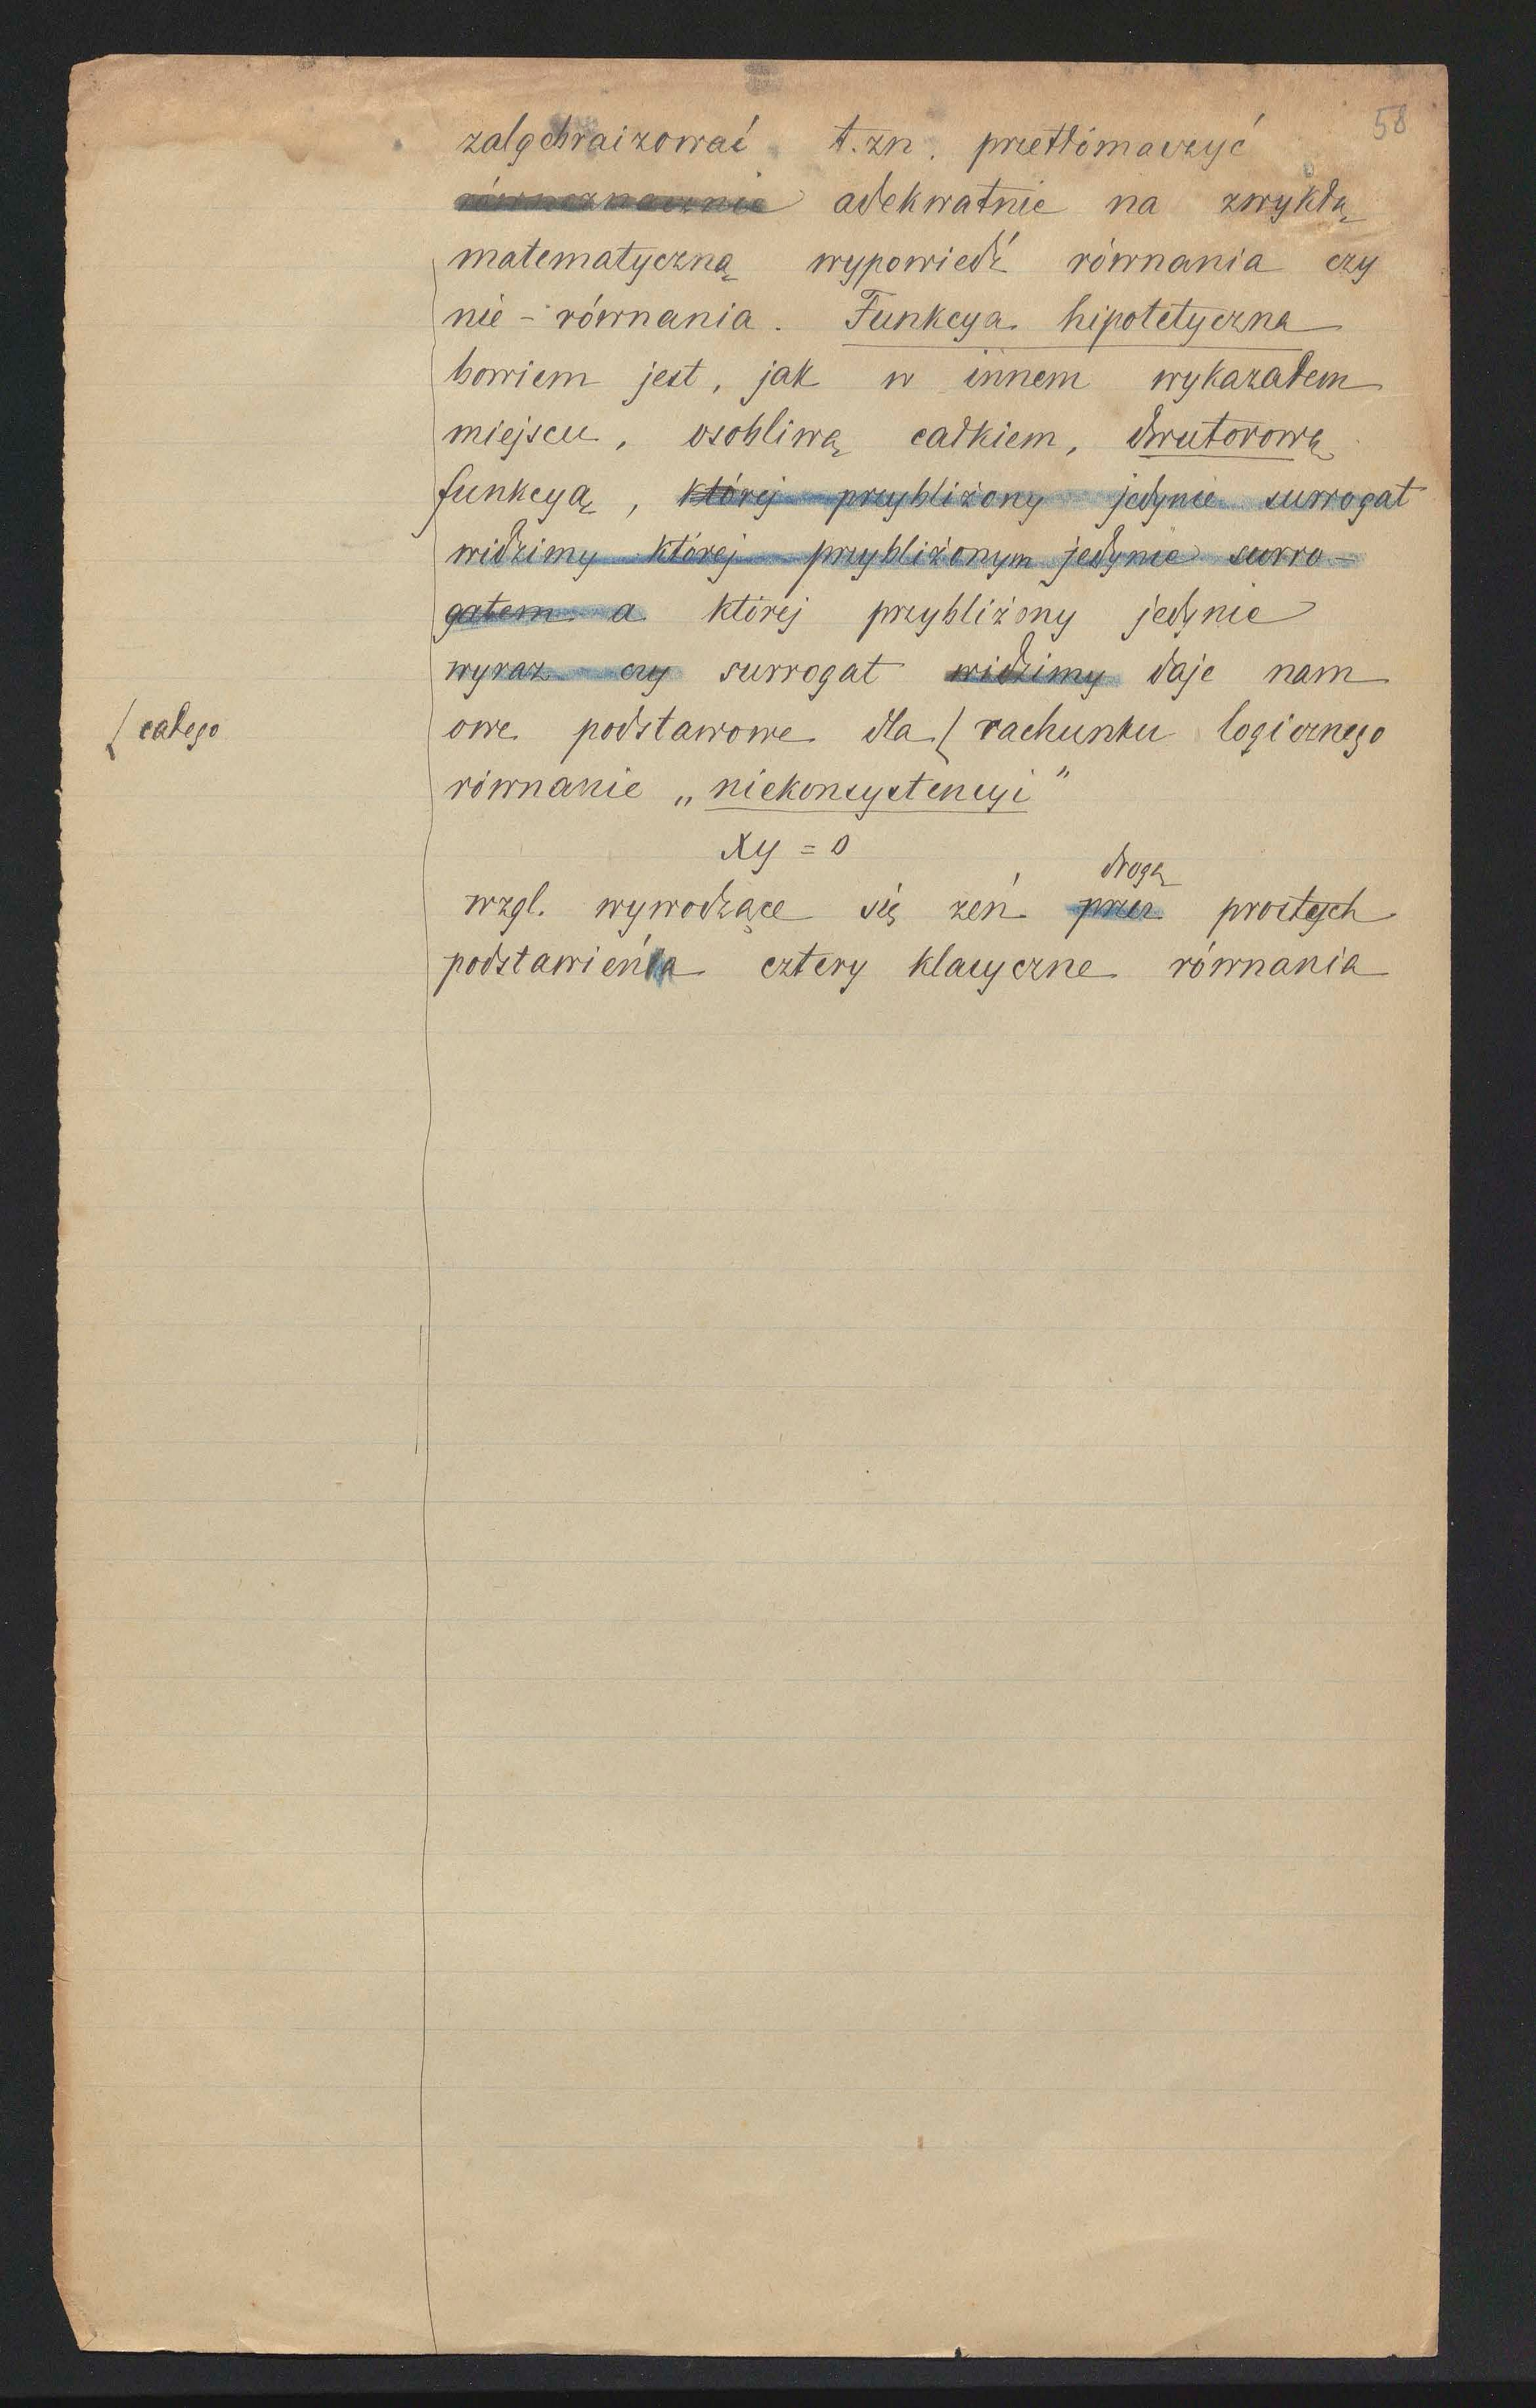 58
zalgebraizować t.zn. przetłómaczyć
równoznacznie adekwatnie na zwykłą
matematyczną wypowiedź równania czy
nie-równania. Funkcya hipotetyczna
bowiem jest, jak w innem wykazałem
miejscu, osobliwą całkiem, dwutorową
funkcyą, której przybliżony jedynie surrogat
widzimy której przybliżonym jedynie surro-
gatem a której przybliżony jedynie
wyraz czy surrogat widzimy daje nam
owe podstawowe dla { rachunku logicznego
{ całego
równanie „niekonsystencyi”
xy = 0
drogą
wzgl. wywodzące się zeń przez prostych
podstawienia cztery klasyczne równania